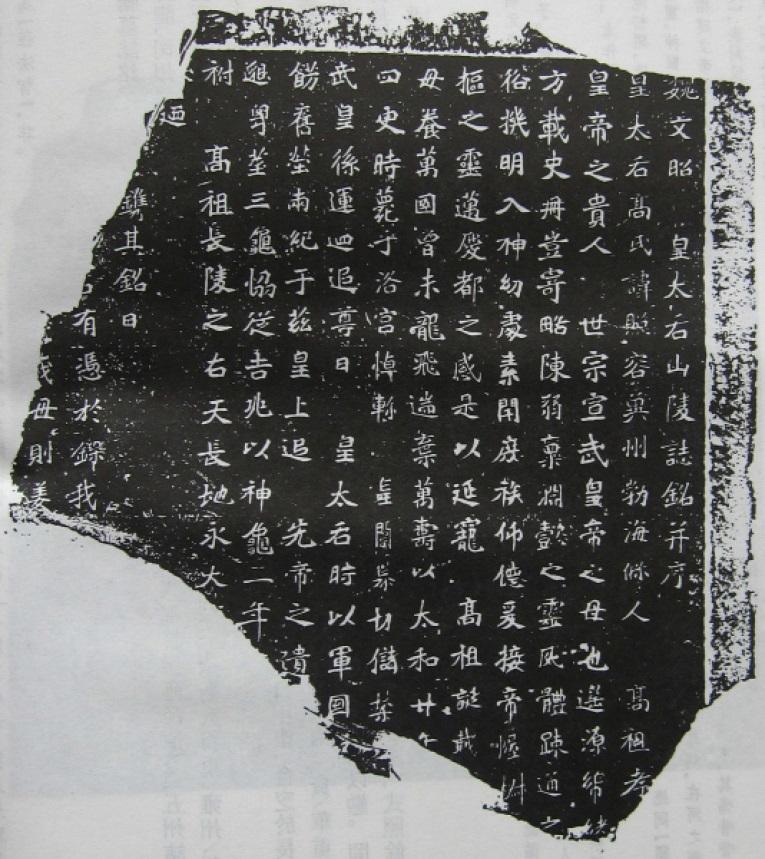 魏文昭 皇太后山陵誌銘并序
皇太后高氏諱照容兾州勃海條人 高祖孝
皇帝之貴人 世宗宣武皇帝之母也遥源緒
方載史冊豈寄略陳弱稟淵懿之靈夙體疎通之
俗機明入神幼處素閈庭族仰德爰接帝幄
樞之靈邁慶都之感是以延寵 高祖誕載
母養萬國曾未龍飛遄棄萬壽以太和廿
四更時薨于洛宮悼軫 皇闈哀切儲禁
武皇係運迺追尊曰 皇太后時以軍國
飭舊塋南紀于兹皇上追 先帝之遺
興塋三龜協從吉兆以神龜二年
祔 高祖長陵之右天長地永大
迺
鐫其銘曰
有憑於鑠我
母則美